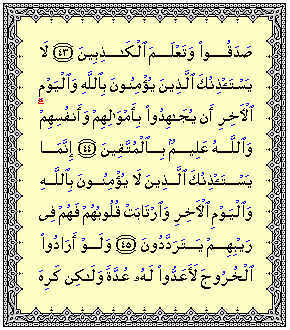 صَدَقُوا۟ وَتَعْلَمَ ٱلْكَـٰذِبِينَ ﴿٤٣﴾ لَا
يَسْتَـْٔذِنُكَ ٱلَّذِينَ يُؤْمِنُونَ بِٱللَّهِ وَٱلْيَوْمِ
ٱلْـَٔاخِرِ أَن يُجَـٰهِدُوا۟ بِأَمْوَٰلِهِمْ وَأَنفُسِهِمْ
وَٱللَّهُ عَلِيمٌۢ بِٱلْمُتَّقِينَ ﴿٤٤﴾ إِنَّمَا
يَسْتَـْٔذِنُكَ ٱلَّذِينَ لَا يُؤْمِنُونَ بِٱللَّهِ
وَٱلْيَوْمِ ٱلْـَٔاخِرِ وَٱرْتَابَتْ قُلُوبُهُمْ فَهُمْ فِى
رَيْبِهِمْ يَتَرَدَّدُونَ ﴿٤٥﴾ وَلَوْ أَرَادُوا۟
ٱلْخُرُوجَ لَأَعَدُّوا۟ لَهُۥ عُدَّةً وَلَـٰكِن كَرِهَ